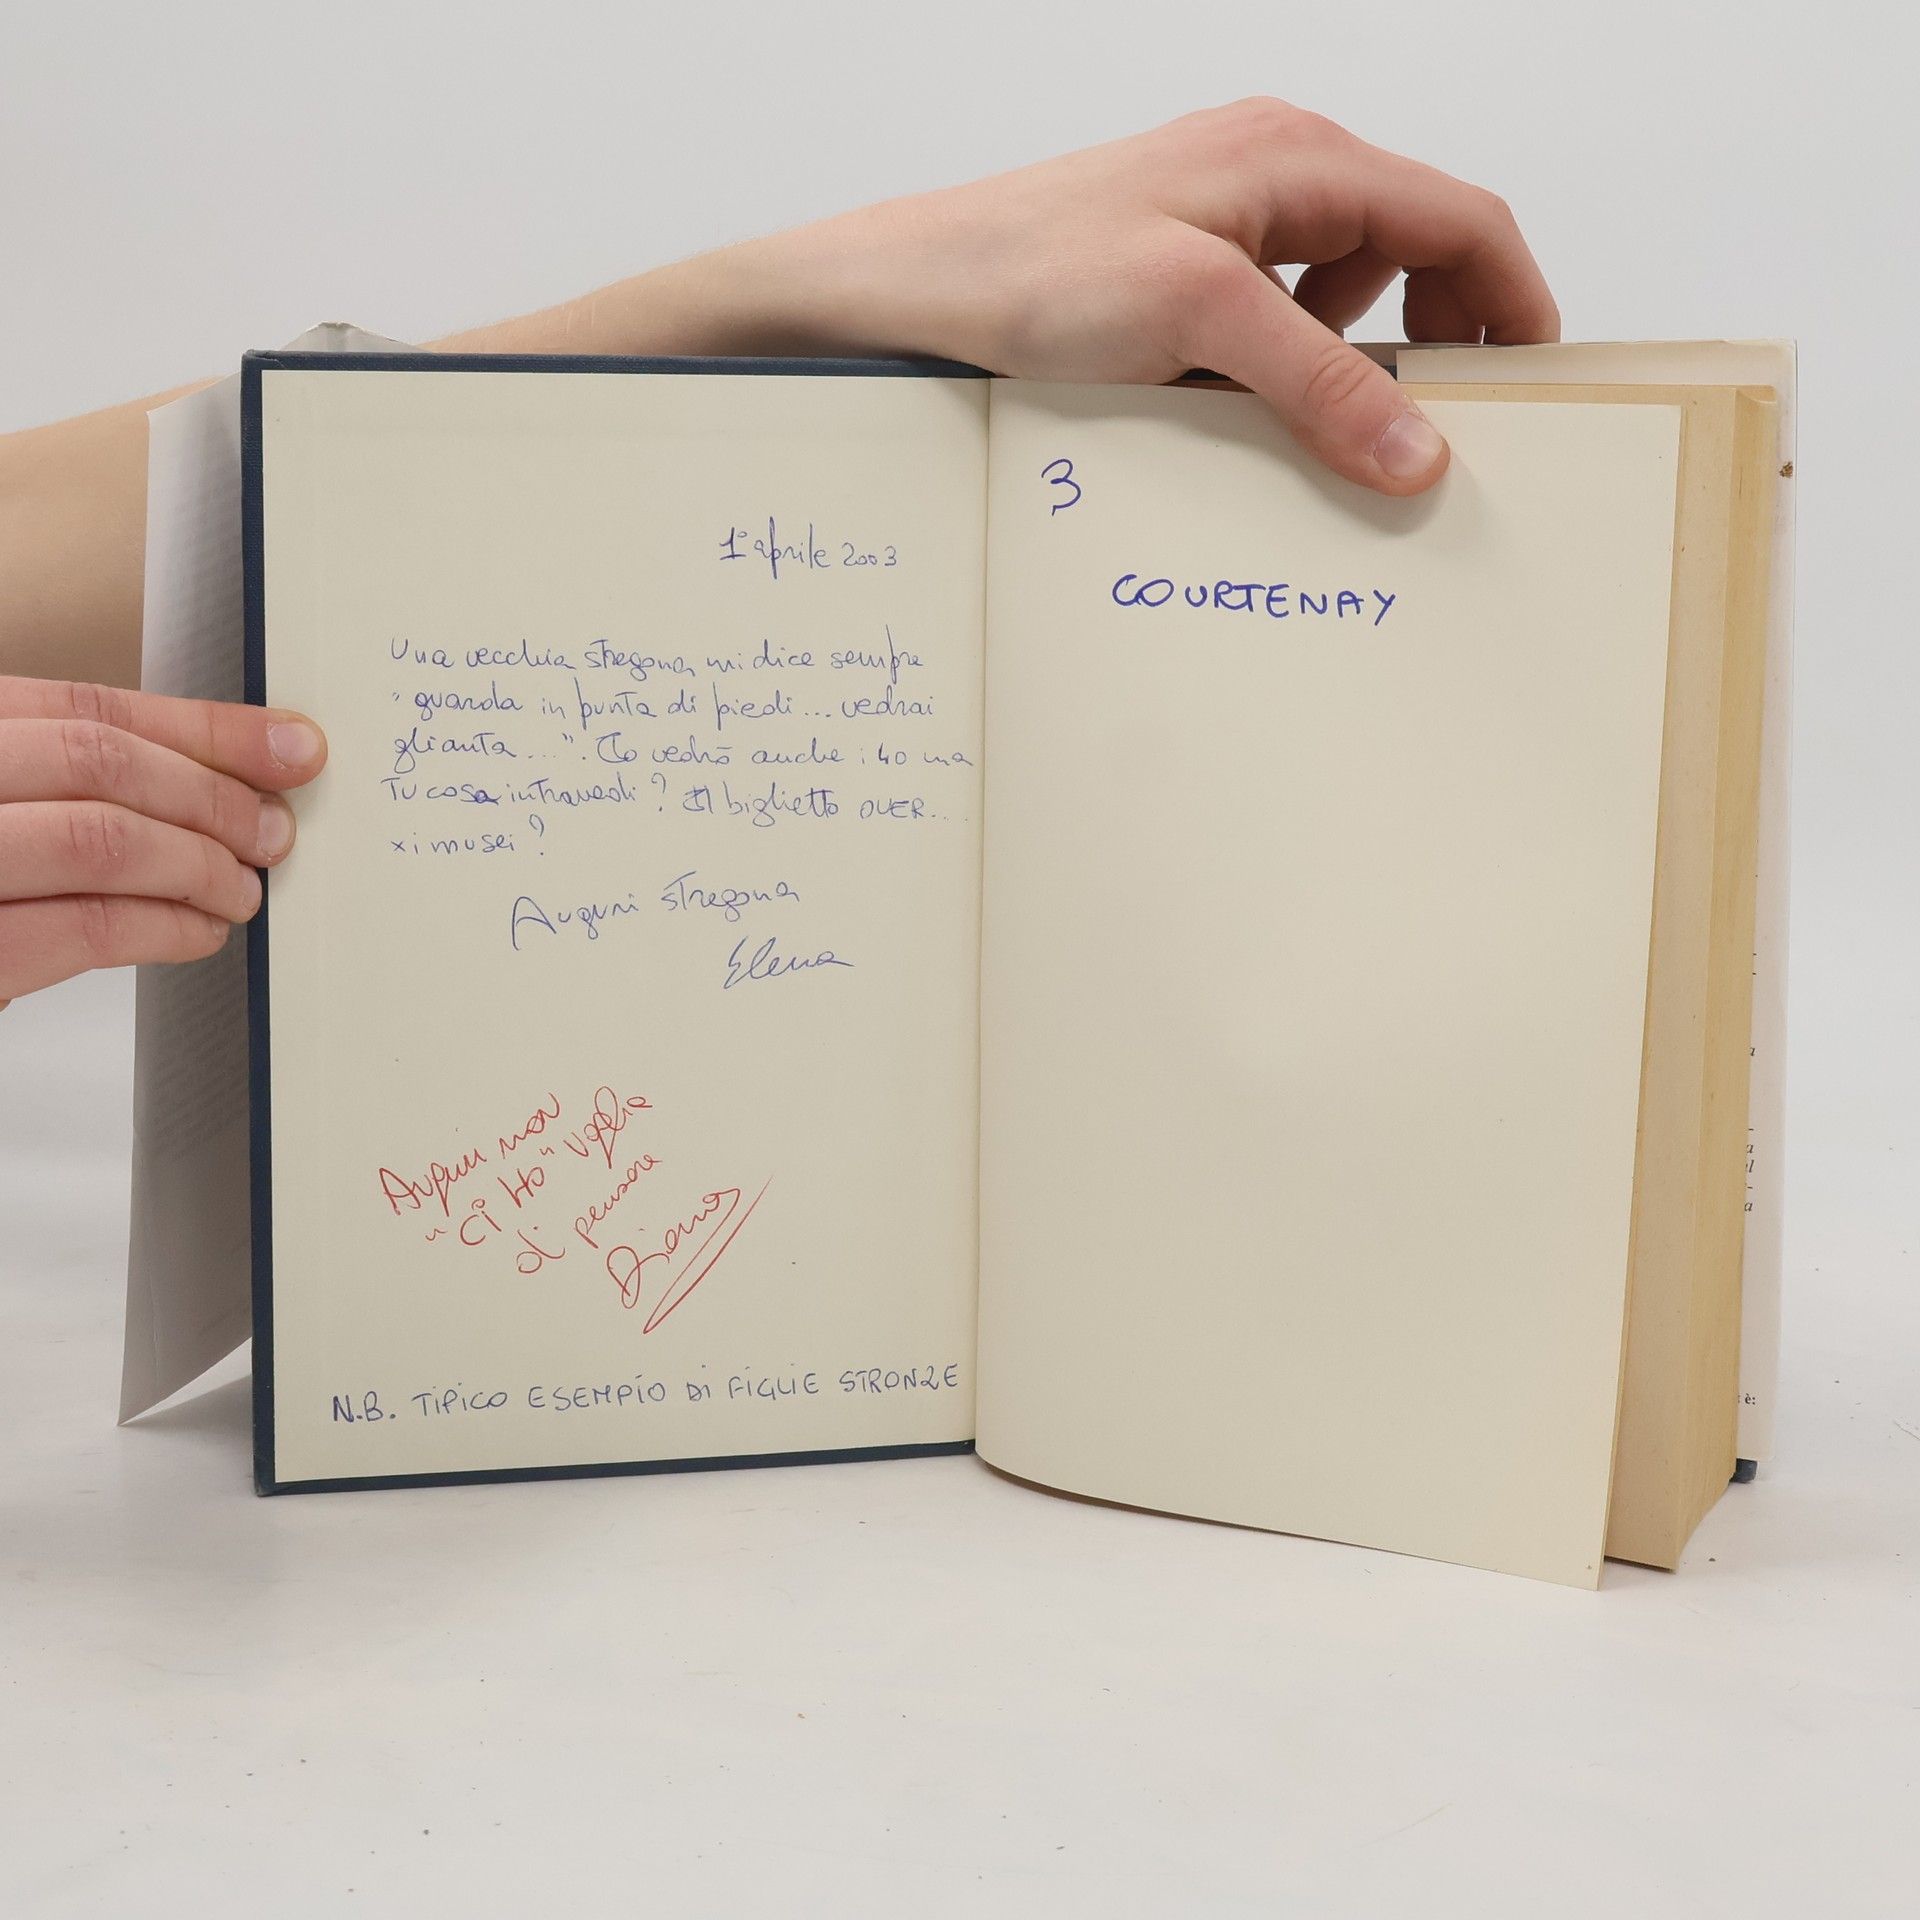 1° aprile 2003
Una vecchia stregona mi dice sempre
"guarda in punta di piedi... vedrai
gli anta ...". Io vedrò anche i 40 ma
Tu cosa intravedi? Il biglietto OVER...
x i musei?
Auguri stregona
Elena
Auguri non
"Ci Ho" voglia
di pensare
Diana
N.B. TIPICO ESEMPIO DI FIGLIE STRONZE
3
COURTENAY
è: